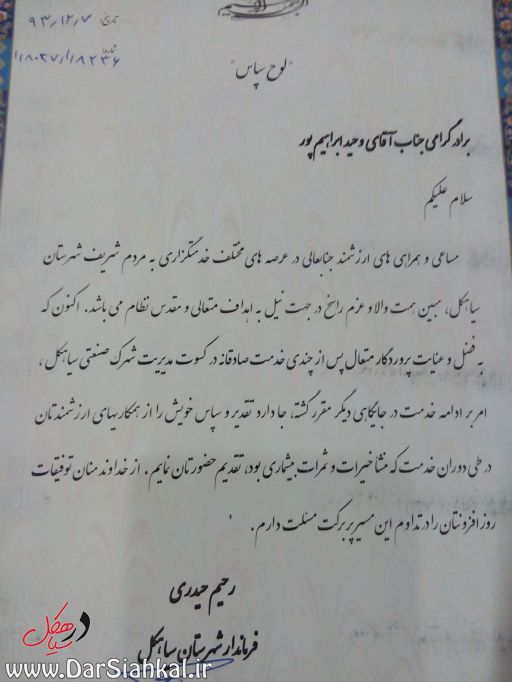 تاریخ: ۹۳/۱۲/۷
شماره: ۱/۱۸۰۳۷/۱/۸۲۳۶
"لوح سپاس"
برادر گرامی جناب آقای وحید ابراهیم پور
سلام علیکم
مساعی و همراهی های ارزشمند جنابعالی در عرصه های مختلف خدمتگزاری به مردم شریف شهرستان
سیاهکل، مبین همت والا و عزم راسخ در جهت نیل به اهداف متعالی و مقدس نظام می باشد. اکنون که
به فضل و عنایت پروردگار متعال پس از چندی خدمت صادقانه در کسوت مدیریت شهرک صنعتی سیاهکل،
امر بر ادامه خدمت در جایگاهی دیگر مقرر گشته، جا دارد تقدیر و سپاس خویش را از همکاریهای ارزشمندتان
در طی دوران خدمت که منشا خیرات و ثمرات بیشماری بود، تقدیم حضورتان نمایم. از خداوند منان توفیقات
روز افزونتان را در تداوم این مسیر پر برکت مسئلت دارم.
رحیم حیدری
فرماندار شهرستان سیاهکل
در سیاهکل
www.DarSiahkal.ir